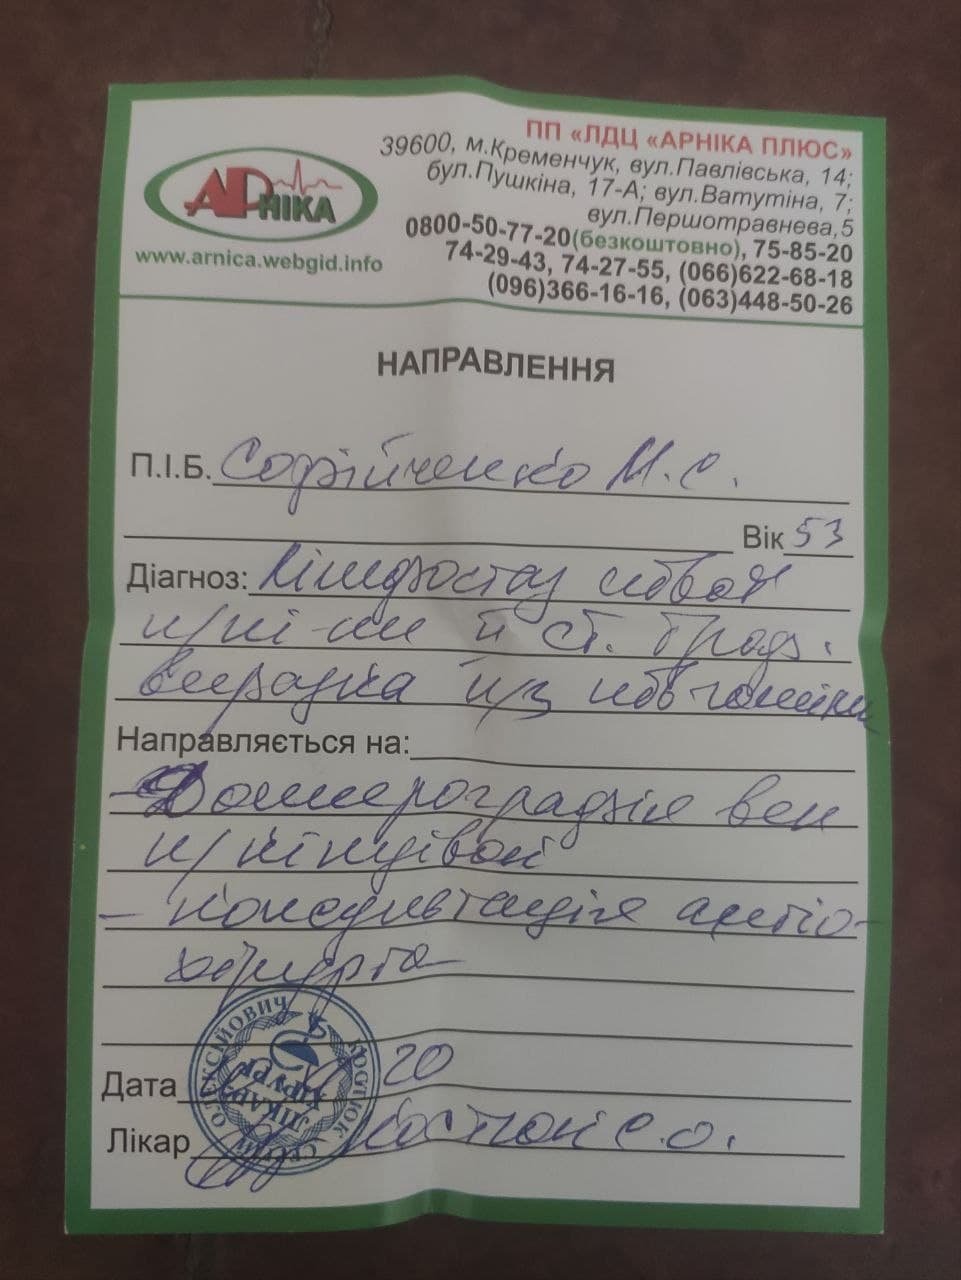 АРНІКА
www.arnica.webgid.info
ПП «ЛДЦ «АРНІКА ПЛЮС»
39600, м.Кременчук, вул.Павлівська, 14;
бул.Пушкіна, 17-А; вул.Ватутіна, 7;
вул.Першотравнева,5
0800-50-77-20(безкоштовно), 75-85-20
74-29-43, 74-27-55, (066)622-68-18
(096)366-16-16, (063)448-50-26
НАПРАВЛЕННЯ
П.І.Б. Софійченко М.С.
Вік 53
Діагноз: Лімфостаз лівої
н/кі-ки II ст. Троф.
виразка н/з лів гомілки
Направляється на:
- Доплерографія вен
н/кінцівок
- консультація ангіо-
хірурга
Дата 20
Лікар Костюк С.О.
КОСТЮК СЕРГІЙ ОЛЕКСІЙОВИЧ
ЛІКАР
ХІРУРГ